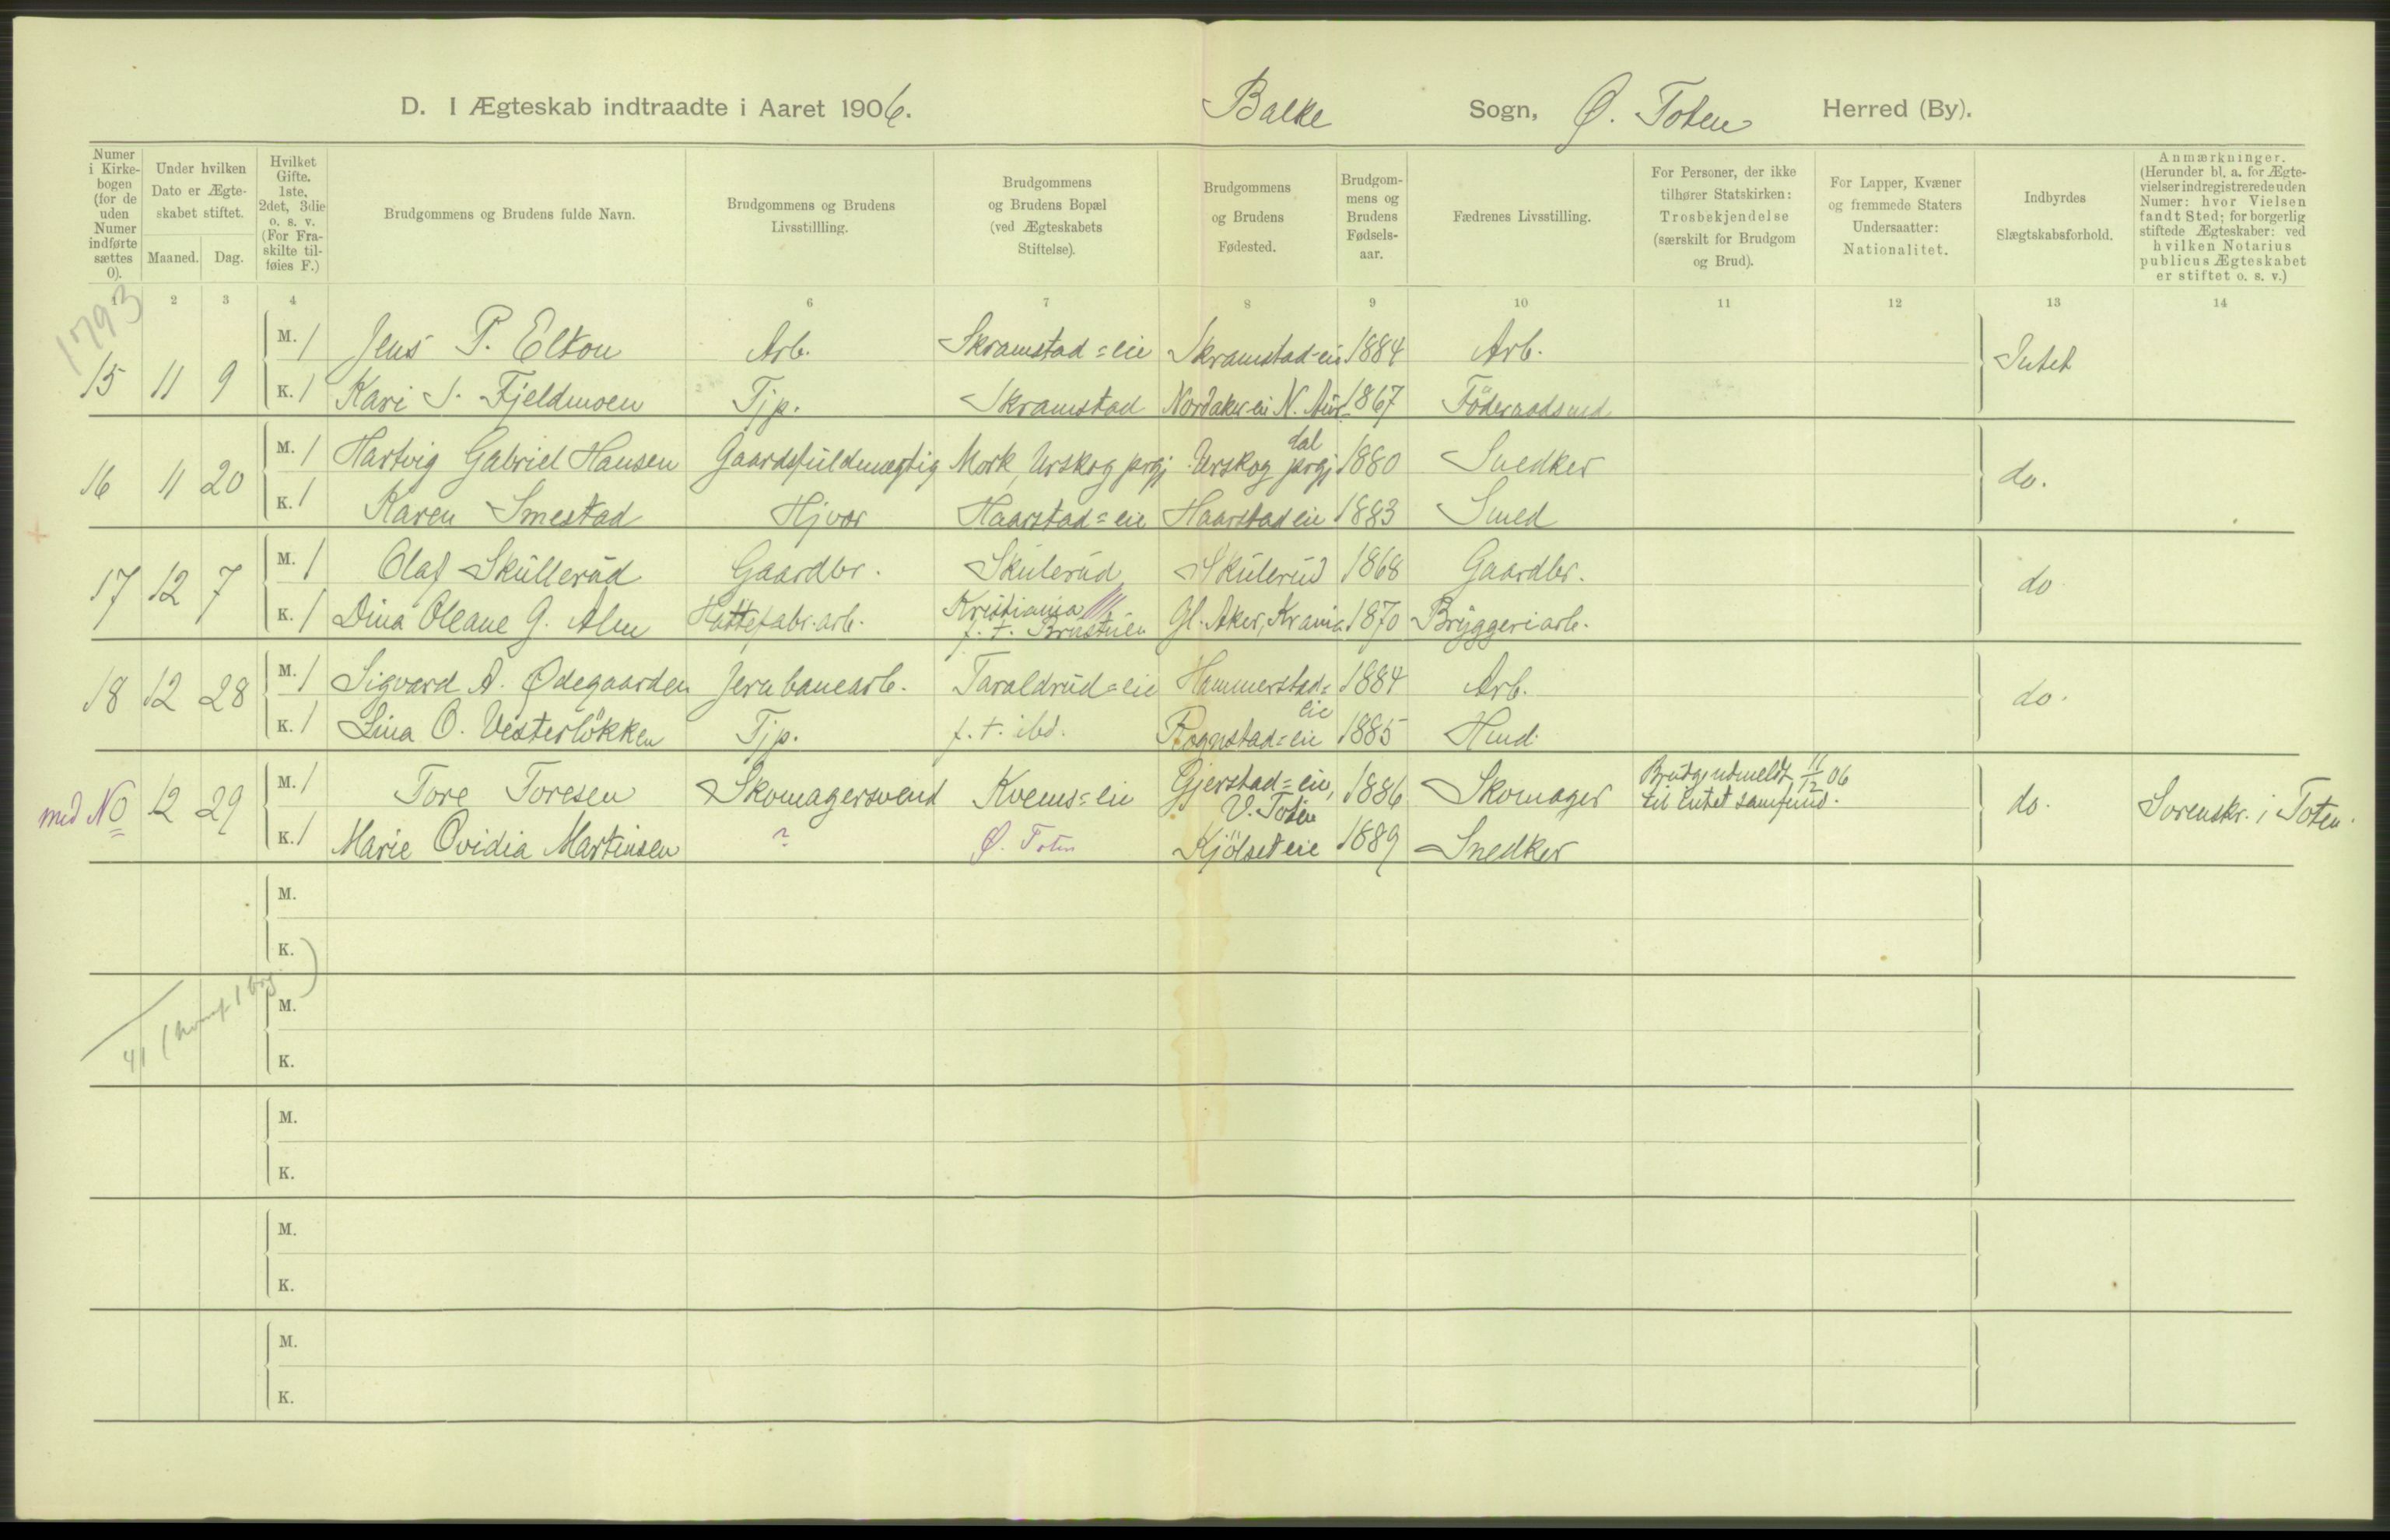 D. I Ægteskab indtraadte i Aaret 1906. Balke Sogn, Ø. Toten Herred (By).
Numer i Kirkebogen (for de uden Numer indførte sættes 0).
Under hvilken Dato er Ægteskabet stiftet.
Maaned. Dag.
Hvilket Gifte. 1ste, 2det, 3die o. s. v. (For Fraskilte tilføies F.)
Brudgommens og Brudens fulde Navn.
Brudgommens og Brudens Livsstillling.
Brudgommens og Brudens Bopæl (ved Ægteskabets Stiftelse).
Brudgommens og Brudens Fødested.
Brudgommens og Brudens Fødselsaar.
Fædrenes Livsstilling.
For Personer, der ikke tilhører Statskirken: Trosbekjendelse (særskilt for Brudgom og Brud).
For Lapper, Kvæner og fremmede Staters Undersaatter: Nationalitet.
Indbyrdes Slægtskabsforhold.
Anmærkninger. (Herunder bl. a. for Ægtevielser indregistrerede uden Numer: hvor Vielsen fandt Sted; for borgerlig stiftede Ægteskaber: ved hvilken Notarius publicus Ægteskabet er stiftet o. s. v.)
1 2 3 4 6 7 8 9 10 11 12 13 14
1793
15 11 9 M. 1 Jens P. Elton Arb. Skramstad=eie Skramstad-eie 1884 Arb. Intet
K. 1 Kari J. Fjeldmoen Tjp. Skramstad Nordaker-eie N. Aur 1867 Föderaadsmd
dal
16 11 20 M. 1 Hartvig Gabriel Hansen Gaardsfuldmægtig Mork, Urskog prgj Urskog prgj 1880 Snedker do.
K. 1 Karen Smestad Hjvær Haarstad=eie Haarstad eie 1883 Smed
17 12 7 M. 1 Olaf Skullerud Gaardbr. Skulerud Skulerud 1868 Gaardbr. do
K. 1 Dina Oleane G. Alm Hattefabr.arb. Kristiania f. t. Brustuen Gl. Aker, Krania 1870 Bryggeriarb.
18 12 28 M. 1 Sigvard A. Ødegaarden Jernbanearb. Taraldrud=eie Hammerstad=eie 1884 Arb. do.
K. 1 Lina O. Vesterlökken Tjp. f. t. ibd. Rognstad=eie 1885 Hmd.
med No 12 29 M. 1 Tore Toresen Skomagersvend Kvems=eie Gjerstad=eie, V. Toten 1886 Skomager Brudg. udmeldt 11/12 06 til intet samfund. do. Sorenskr. i Toten.
K. 1 Marie Ovidia Martinsen ? Ø. Toten Kjölset eie 1889 Snedker
M.
K.
M.
K.
41
M.
K.
M.
K.
M.
K.